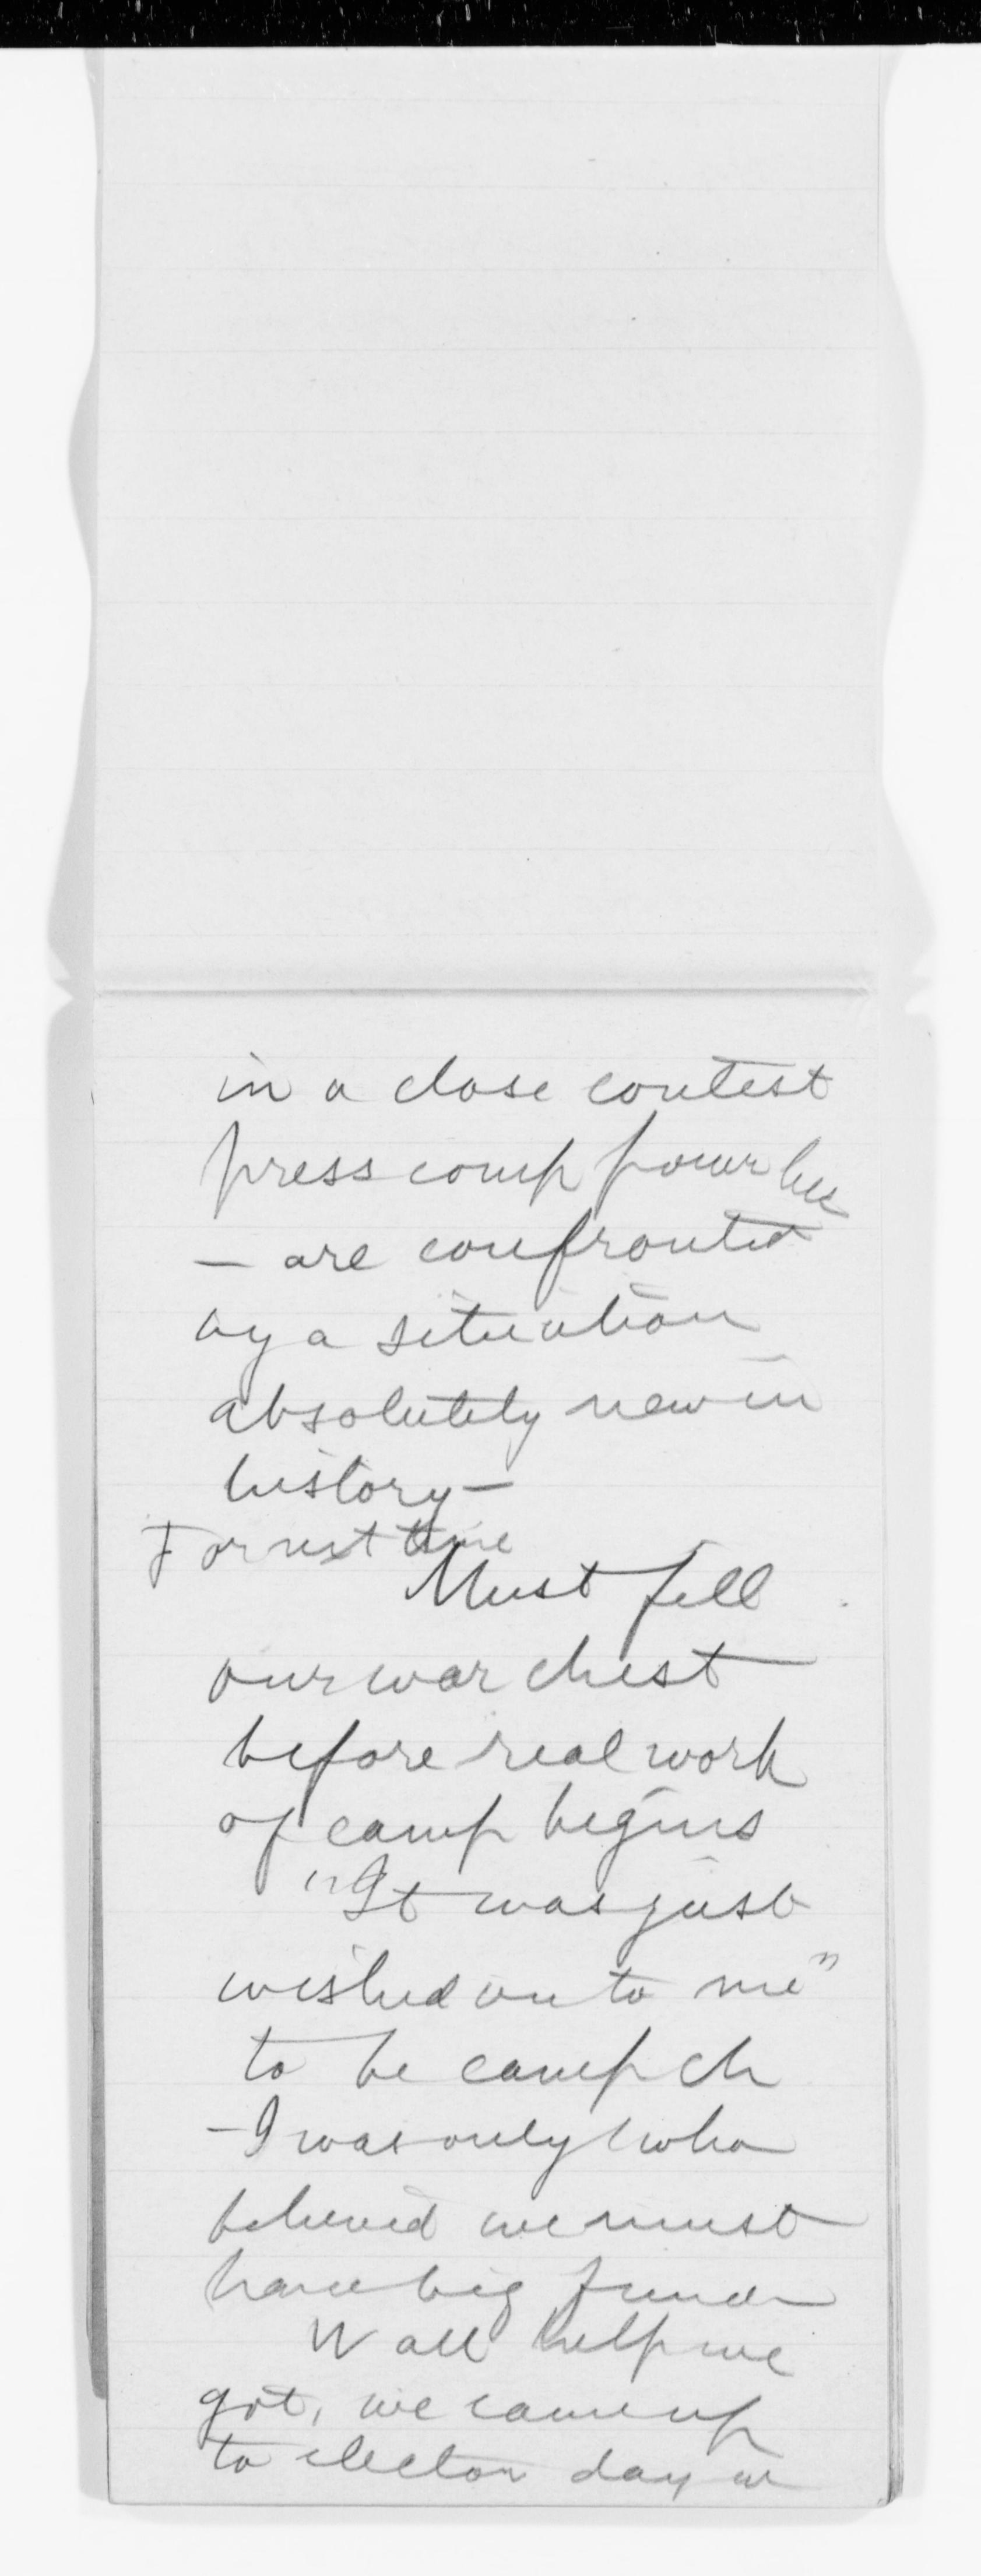 in a close contest
press comp power
— are confronted
by a situation
absolutely new in
history —
For next time
Must fill
our war chest
before real work
of camp begins
"It was just
wished on to me"
to be camp ch
- I was only 1 who
believed we must
have big fund
W all help we
got, we came up
to election day w